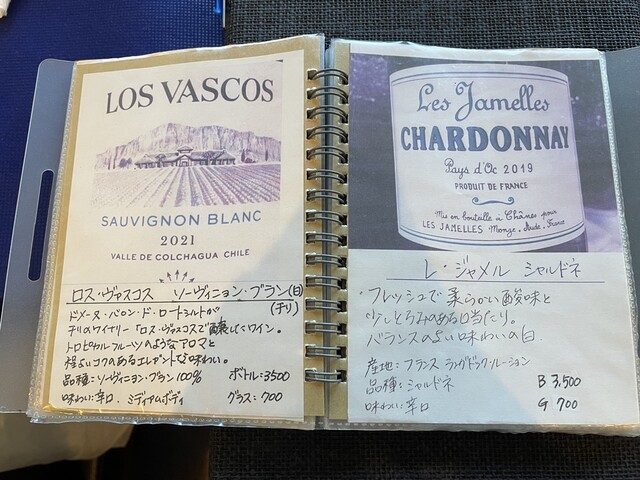 LOS VASCOS
SAUVIGNON BLANC
2021
VALLE DE COLCHAGUA CHILE
ロス・ヴァスコス ソーヴィニョン・ブラン(白)
(チリ)
ドメーヌ・バロン・ド・ロートシルトが
チリのワイナリー「ロス・ヴァスコス」で醸したワイン。
トロピカルフルーツのようなアロマと
程よいコクのあるエレガントな味わい。
品種:ソーヴィニョン・ブラン100% ボトル:3500
味わい:辛口 ミディアムボディ グラス:700
Les Jamelles
CHARDONNAY
Pays d'Oc 2019
PRODUIT DE FRANCE
Mis en bouteille à Chânes pour
LES JAMELLES Monze, Aude, France
レ・ジャメル シャルドネ
・フレッシュで柔らかい酸味と
少しとろみのある口当たり。
バランスのよい味わいの白
産地:フランス ラングドック・ルーション
品種:シャルドネ B 3,500
味わい:辛口 G 700